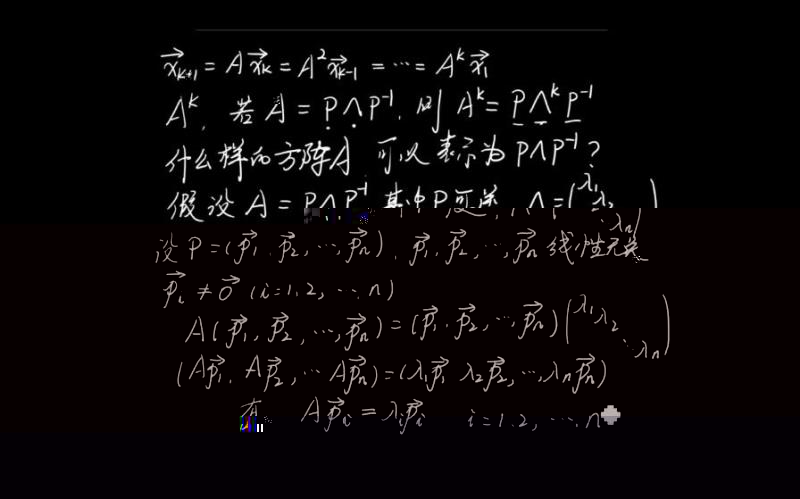 x⃗ₖ₊₁ = A x⃗ₖ = A² x⃗ₖ₋₁ = ⋯ = Aᵏ x⃗₁
Aᵏ, 若 A = PΛP⁻¹, 则 Aᵏ = PΛᵏP⁻¹
什么样的方阵A 可以表示为 PΛP⁻¹?
假设 A = PΛP⁻¹ 其中P可逆, Λ = (λ₁ λ₂ ⋱ λₙ)
设 P = (p⃗₁, p⃗₂, ⋯, p⃗ₙ), p⃗₁, p⃗₂, ⋯, p⃗ₙ 线性无关
p⃗ᵢ ≠ 0⃗ (i=1.2, ⋯. n)
A(p⃗₁, p⃗₂, ⋯, p⃗ₙ) = (p⃗₁, p⃗₂, ⋯, p⃗ₙ)(λ₁ λ₂ ⋱ λₙ)
(Ap⃗₁, Ap⃗₂, ⋯ Ap⃗ₙ) = (λ₁p⃗₁ λ₂p⃗₂, ⋯, λₙp⃗ₙ)
有 Ap⃗ᵢ = λᵢp⃗ᵢ i=1.2, ⋯. n